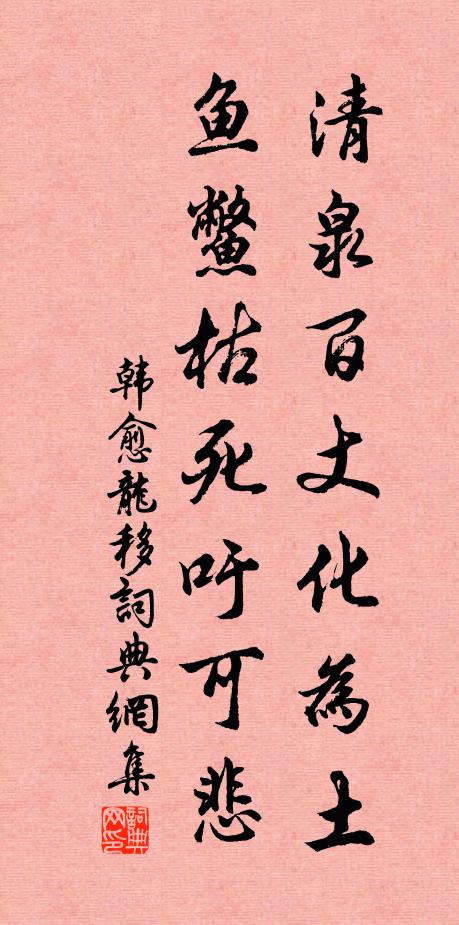 清泉百丈化為土
鱼鳖枯死吁可悲
韩愈龍移詞典網集
詞典网印